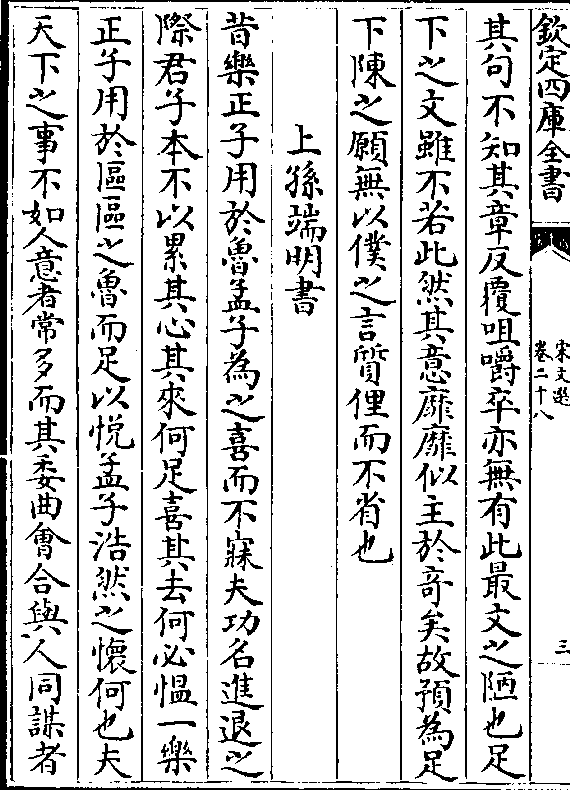 欽定四庫全書
宋文選
卷二十八
三
其句不知其章反覆咀嚼卒亦無有此最文之陋也足
下之文雖不若此然其意靡靡似主於竒矣故預為足
下陳之願無以僕之言質俚而不省也
上孫端明書
昔樂正子用於魯孟子為之喜而不寐夫功名進退之
際君子本不以累其心其來何足喜其去何必愠一樂
正子用於區區之魯而足以悦孟子浩然之懷何也夫
天下之事不如人意者常多而其委曲㑹合與人同謀者